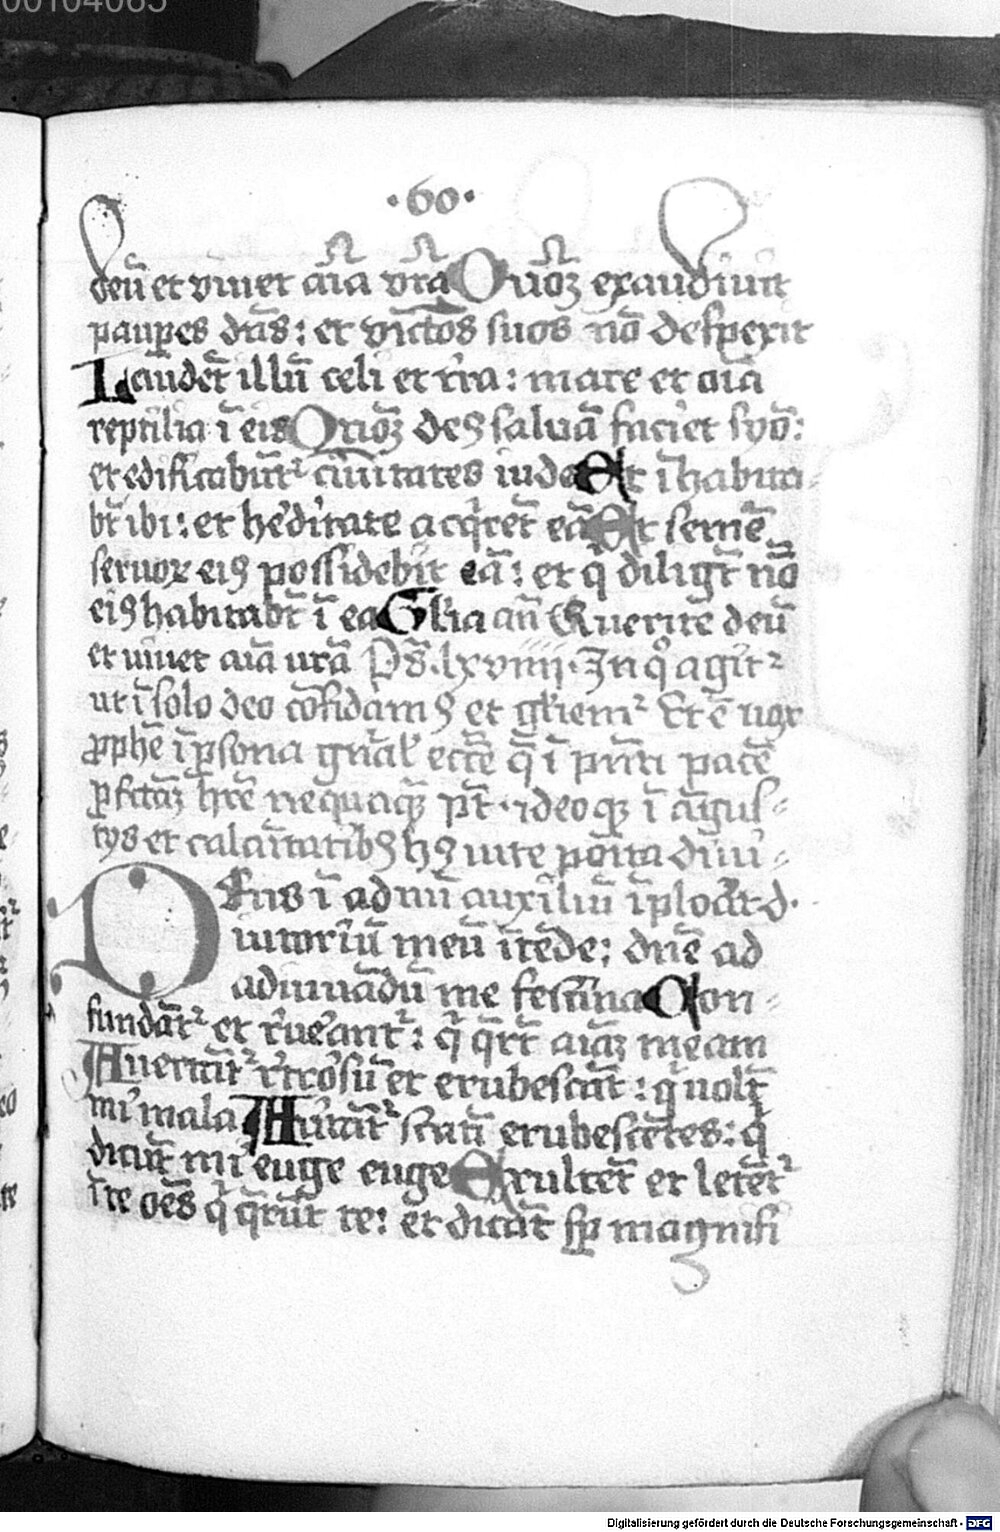 00104065
·60·
deū et viuet aīa vr̄a Quōꝫ exaudiuit
paupes dn̄s: et vinctōs suos nō despexit
Laudēt illū celi et tr̄a: mare et oīa
reptilia ī eis Qm̄oꝫ deꝰ saluā faciet syō:
et edificabūt᷑ ciuitates iude Et īhabita
bt̄ ibi: et hēditate acq̇ret eā Et semē
seruoꝝ eiꝰ possidebit eā: et q̇ diligt̄ nō
eiꝰ habitabt̄ ī ea Gl̄ia an̄ Querite deū
et uiuet aīa ur̄a Ps̄. lxviiii. In qͦ agit᷑
ut ī solo deo cōfidamꝰ et gl̄iem᷑ Et ē uox
ꝓphē ī ꝑsona gn̄al' eccē q̄ ī pn̄ti pacē
ꝑfctāꝫ hr̄e nequaqꝫ pt̄. ideoqꝫ ī āgus
tys et calamitatibꝰ hꝰ uite poīta diui
Eus ī ad nū auxiliū īplorat d.
iutoriū meū ītēde: dn̄e ad
adiuuādū me festina Con
fundāt᷑ et reue'ant᷑: q̇ q̄rt̄ aīaꝫ meam
Auertāt᷑ rt'rōsū et erubescāt: q̇ uolt̄
mi' mala Auertāt᷑ statī erubescētes: q̇
dicūt mi' euge euge Exultēt et letēt᷑
ī te oēs q̇ q̄rūt te: et dicāt sp̄ magnifi
Digitalisierung gefördert durch die Deutsche Forschungsgemeinschaft - DFG